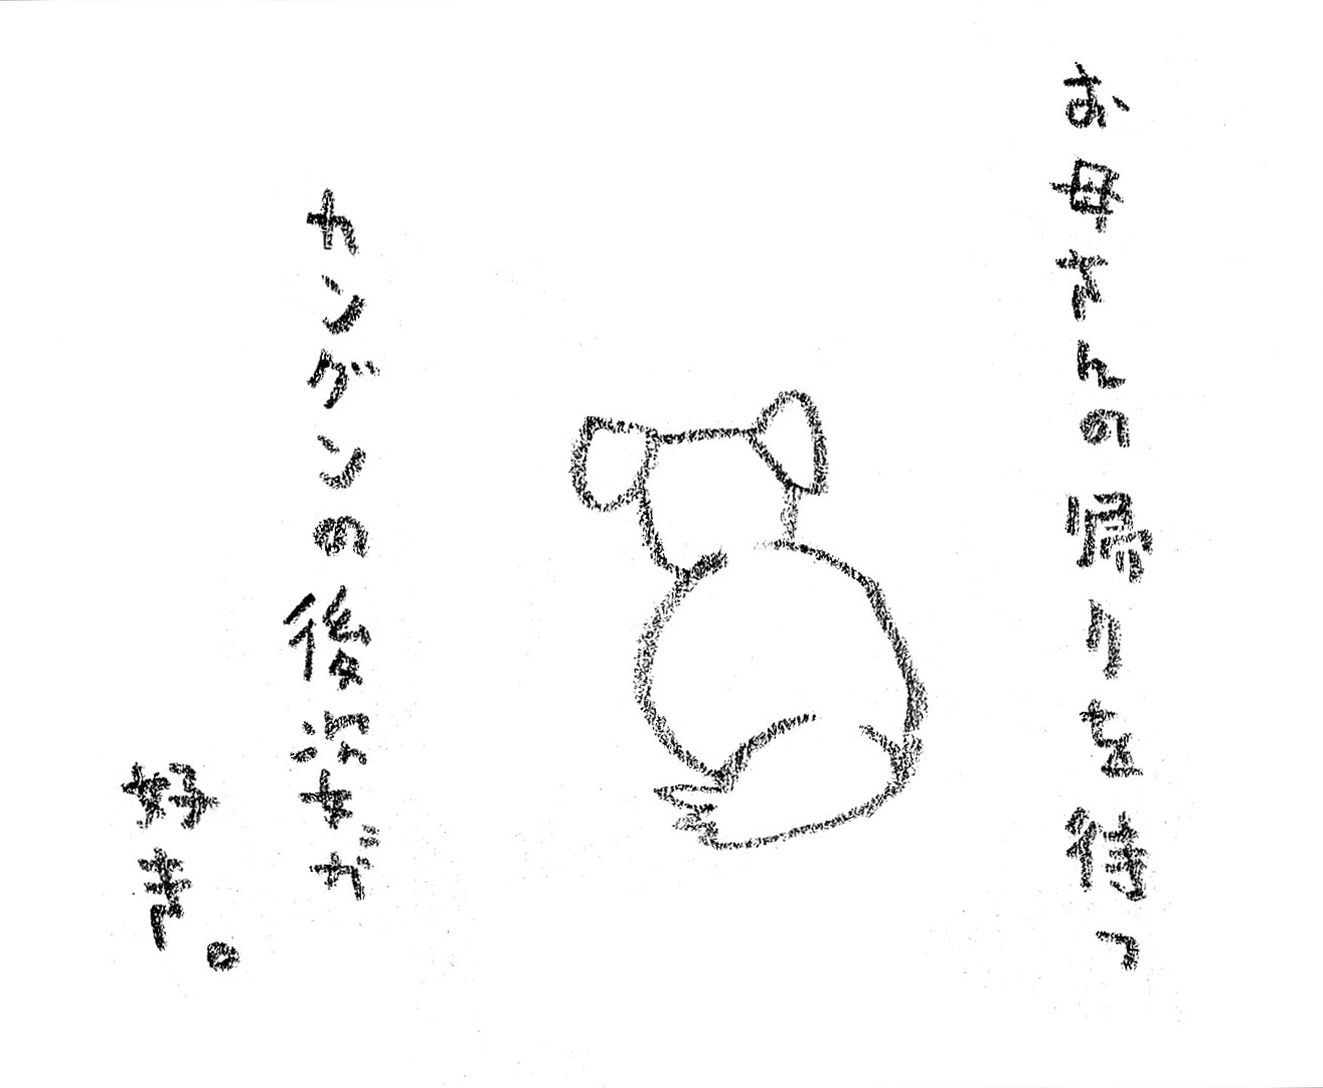 お母さんの帰りを待つ
カングンの後姿が
好き。